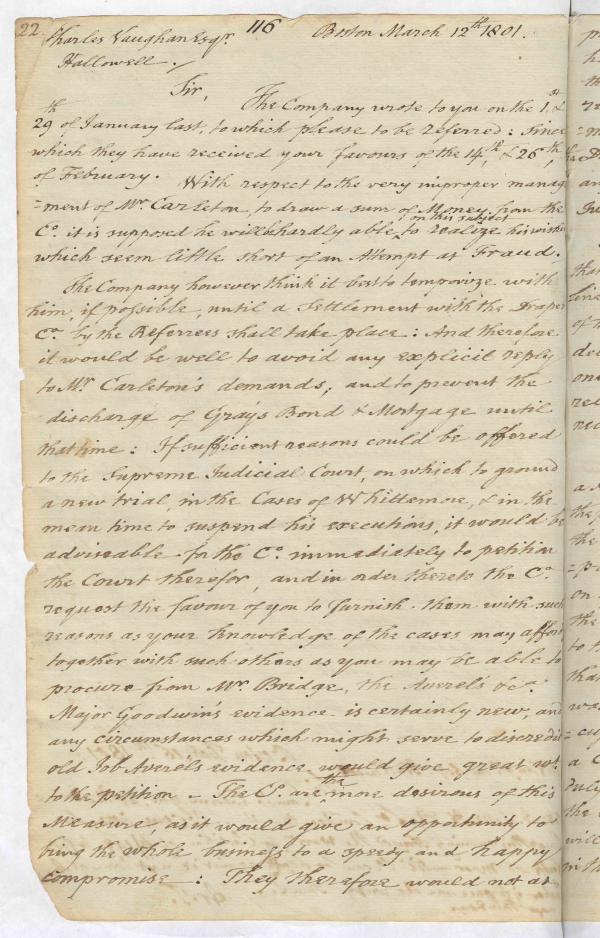 22.
116
Charles Vaughan Esqr. Boston March 12th 1801.
Hallowell.
Sir, The Company wrote to you on the 1st &
29th of January last, to which please to be referred: Since
which they have received your favours of the 14th & 26th,
of February. With respect to the very improper manag
=ment of Mr. Carleton, to draw a sum of Money from the
on this subject
Co. it is supposed he will hardly able to realize his wishes
which seem little short of an Attempt at Fraud.
The Company however think it best to temporize with
him, if possible, until a Settlement with the Draper
Co. by the Referrees shall take place: And therefore
it would be well to avoid any explicit reply
to Mr. Carleton's demands; and to prevent the
discharge of Grays Bond & Mortgage until
that time: If sufficient reasons could be offered
to the Supreme Judicial Court, on which to ground
a new trial, in the Cases of Whittemore, & in the
mean time to suspend his executions, it would be
adviseable for the Co. immediately to petition
the Court therefor, and in order thereto the Co.
request the favour of you to furnish them with such
reasons as your knowledge of the cases may afford
together with such others as you may be able to
procure from Mr. Bridge, the Averels &ca.
Major Goodwin's evidence is certainly new, and
any circumstances which might serve to discredit
old Job Averels evidence would give great wt.
to the petition – The Co. are the more desirous of this
Measure, as it would give an opportunity to
bring the whole business to a speedy and happy
compromise: They therefore would not at